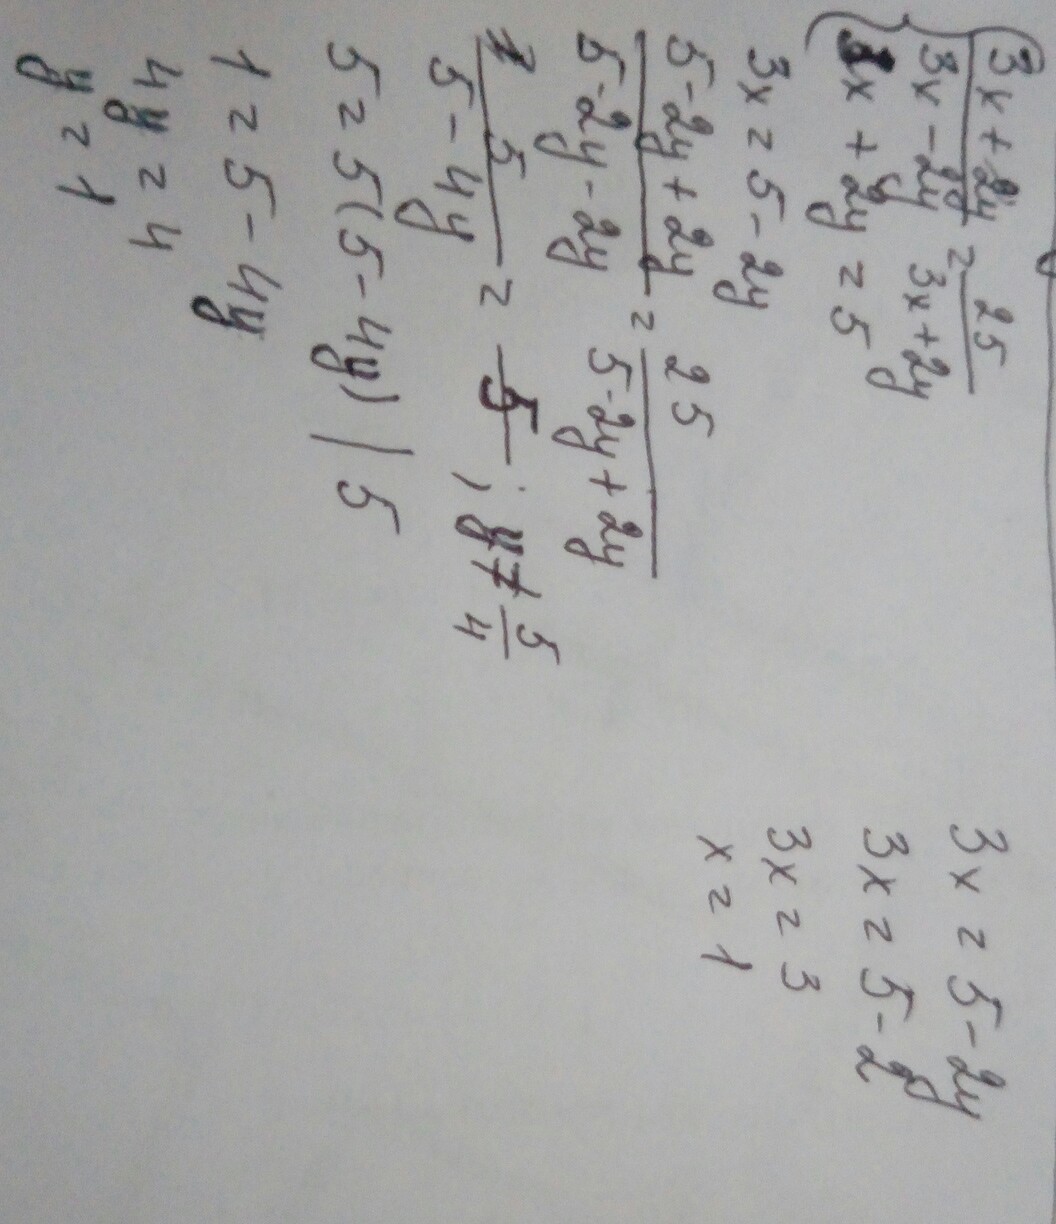 3x+2y/3x-2y = 25/3x+2y
3x+2y=5
3x=5-2y
5-2y+2y/5-2y-2y = 25/5-2y+2y
5/5-4y = 5; y≠5/4
5=5(5-4y) | 5
1=5-4y
4y=4
y=1
3x=5-2y
3x=5-2
3x=3
x=1